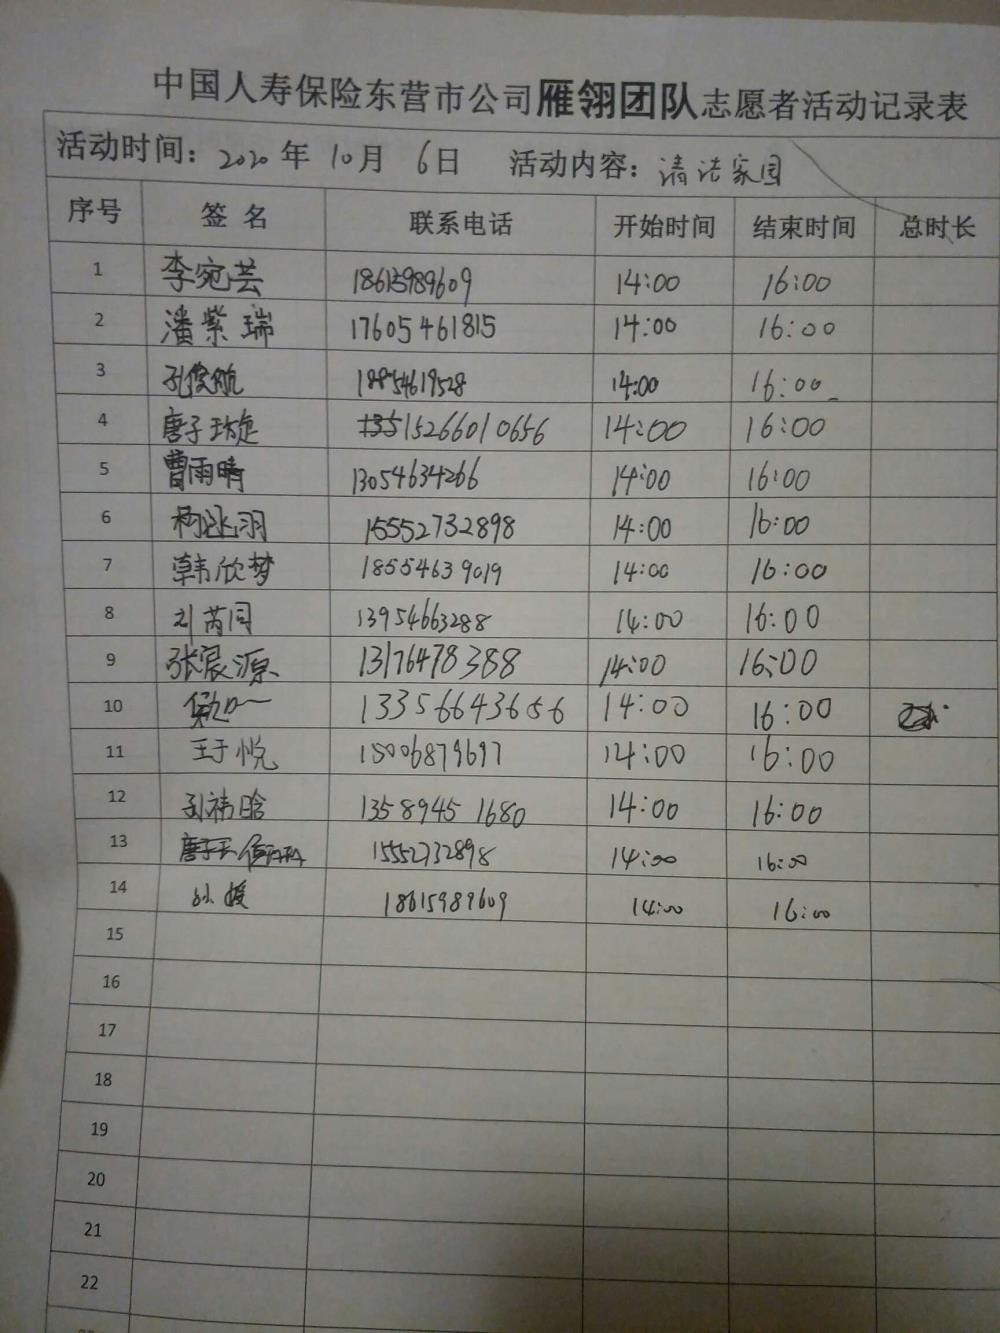 中国人寿保险东营市公司雁翎团队志愿者活动记录表
活动时间：2020年10月6日 活动内容：清洁家园
序号 签名 联系电话 开始时间 结束时间 总时长
1 李宛芸 18615989609 14:00 16:00
2 潘紫瑞 17605461815 14:00 16:00
3 孔俊航 18854619528 14:00 16:00
4 唐子琁 15266010656 14:00 16:00
5 曹雨晴 13054634266 14:00 16:00
6 15552732898 14:00 16:00
7 韩欣梦 18554639019 14:00 16:00
8 刘芮同 13954663288 14:00 16:00
9 张宸源 13176478388 14:00 16:00
10 13356643656 14:00 16:00
11 王于悦 15006879697 14:00 16:00
12 孙祎晗 13589451680 14:00 16:00
13 15552732898 14:00 16:00
14 孙媛 18615989609 14:00 16:00
15
16
17
18
19
20
21
22